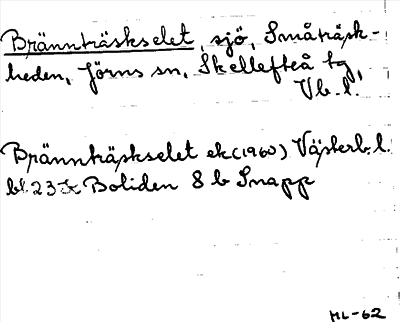 Brännträskselet, sjö, Småträsk-
heden, Jörns sn, Skellefteå tg,
Vb. l.
Brännträskselet ek (1960) Västerb. l.
bl 23 Boliden 8 b Snapp
ML-62